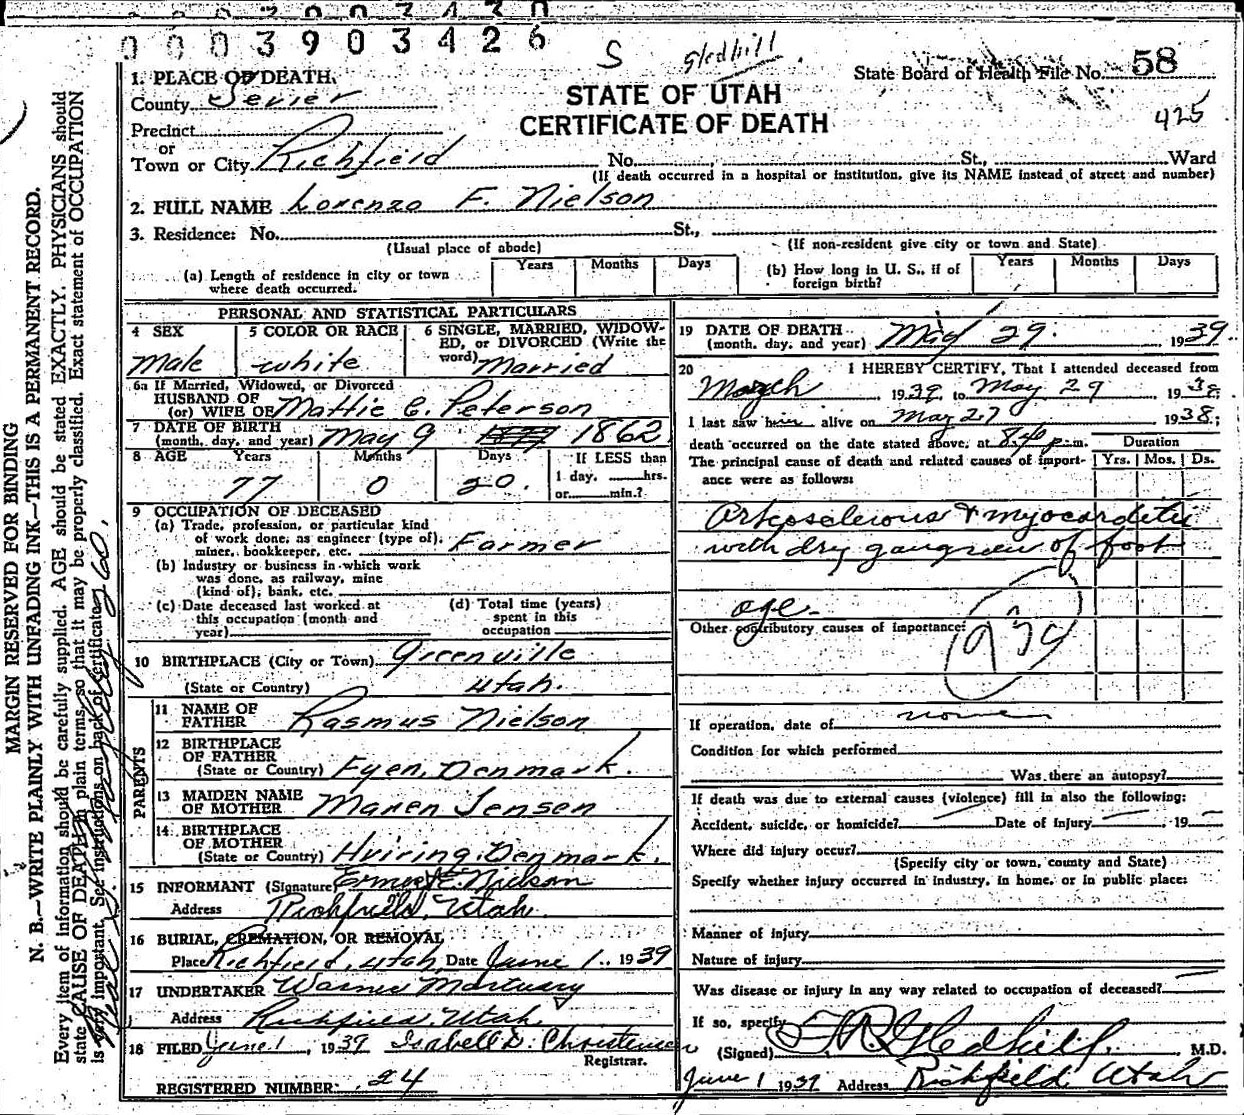 0003903426
S Gledhill
State Board of Health File No. 58
425
STATE OF UTAH
CERTIFICATE OF DEATH
1. PLACE OF DEATH.
County Sevier
Precinct
or
Town or City Richfield No. St., Ward
(If death occurred in a hospital or institution, give its NAME instead of street and number)
2. FULL NAME Lorenzo F. Nielson
3. Residence: No. St.,
(Usual place of abode) (If non-resident give city or town and State)
(a) Length of residence in city or town where death occurred. Years Months Days
(b) How long in U. S., if of foreign birth? Years Months Days
PERSONAL AND STATISTICAL PARTICULARS
4 SEX Male
5 COLOR OR RACE white
6 SINGLE, MARRIED, WIDOWED, or DIVORCED (Write the word) Married
6a If Married, Widowed, or Divorced
HUSBAND OF
(or) WIFE OF Mattie C. Peterson
7 DATE OF BIRTH
(month, day, and year) May 9 1862
8 AGE Years Months Days If LESS than
77 0 20. 1 day, hrs.
or min.?
9 OCCUPATION OF DECEASED
(a) Trade, profession, or particular kind
of work done, as engineer (type of),
miner, bookkeeper, etc. Farmer
(b) Industry or business in which work
was done, as railway, mine
(kind of), bank, etc.
(c) Date deceased last worked at
this occupation (month and
year)
(d) Total time (years)
spent in this
occupation
10 BIRTHPLACE (City or Town) Greenville
(State or Country) Utah.
PARENTS
11 NAME OF
FATHER Rasmus Nielson
12 BIRTHPLACE
OF FATHER
(State or Country) Fyen, Denmark.
13 MAIDEN NAME
OF MOTHER Maren Jensen
14 BIRTHPLACE
OF MOTHER
(State or Country) Hviring, Denmark.
15 INFORMANT (Signature) Ernest E. Nielson
Address Richfield, Utah.
16 BURIAL, CREMATION, OR REMOVAL
Place Richfield, Utah, Date June 1., 1939
17 UNDERTAKER Warner Mortuary
Address Richfield, Utah.
18 FILED June 1, 1939 Isabell D. Christensen
Registrar.
REGISTERED NUMBER 24
19 DATE OF DEATH
(month, day, and year) May 29. 1939.
20 I HEREBY CERTIFY, That I attended deceased from
March, 1939, to May 29 1938;
I last saw him alive on May 27 1938;
death occurred on the date stated above, at 8:40 p. m.
Duration
Yrs. Mos. Ds.
The principal cause of death and related causes of importance were as follows:
Arteosclerous & myocarditis
with dry gangreen of foot
age
Other contributory causes of importance:
If operation, date of none
Condition for which performed
Was there an autopsy?
If death was due to external causes (violence) fill in also the following:
Accident, suicide, or homicide? Date of injury , 19
Where did injury occur?
(Specify city or town, county and State)
Specify whether injury occurred in industry, in home, or in public place:
Manner of injury
Nature of injury
Was disease or injury in any way related to occupation of deceased?
If so, specify
(Signed) T. R. Gledhill, M.D.
June 1 1939 Address Richfield Utah
MARGIN RESERVED FOR BINDING
N. B.—WRITE PLAINLY WITH UNFADING INK—THIS IS A PERMANENT RECORD.
Every item of information should be carefully supplied. AGE should be stated EXACTLY. PHYSICIANS should
state CAUSE OF DEATH in plain terms, so that it may be properly classified. Exact statement of OCCUPATION
is very important. See instructions on back of certificate.